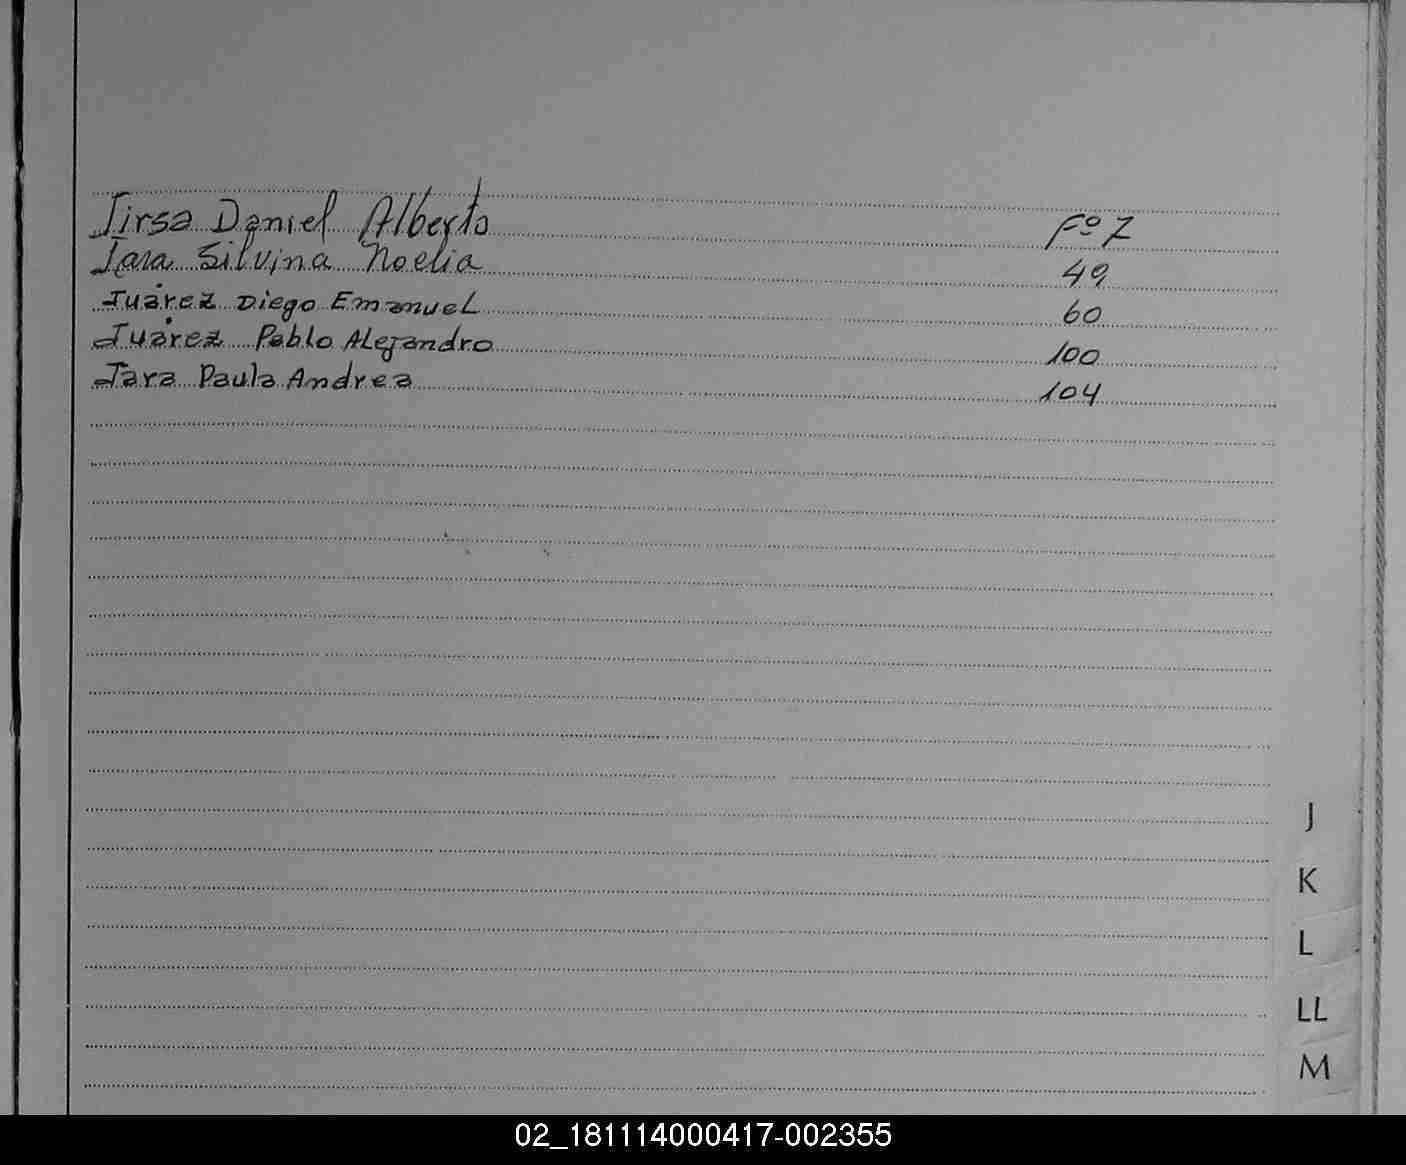 Jirsa Daniel Alberto Fº 7
Jara Silvina Noelia 49
Juárez Diego Emanuel 60
Juárez Pablo Alejandro 100
Jara Paula Andrea 104
J
K
L
LL
M
02_181114000417-002355